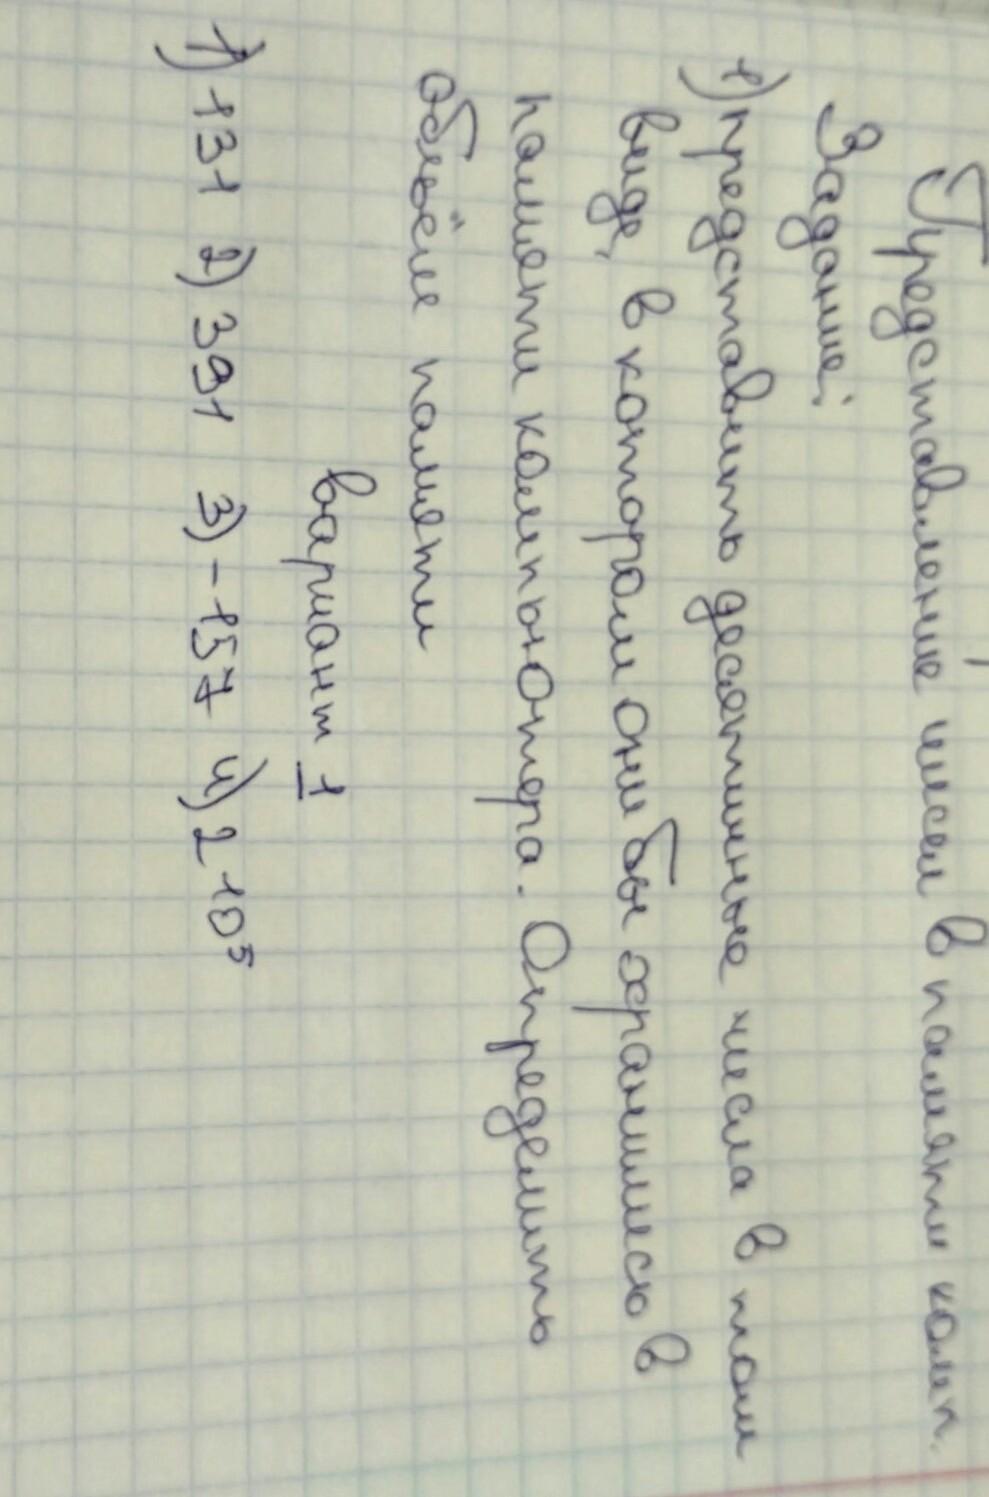 Представление чисел в памяти комп.
Задание:
1) представить десятичные числа в том
виде, в котором они бы хранились в
памяти компьютера. Определить
объём памяти
вариант 1
1) 131 2) 391 3) -157 4) 2 10⁵